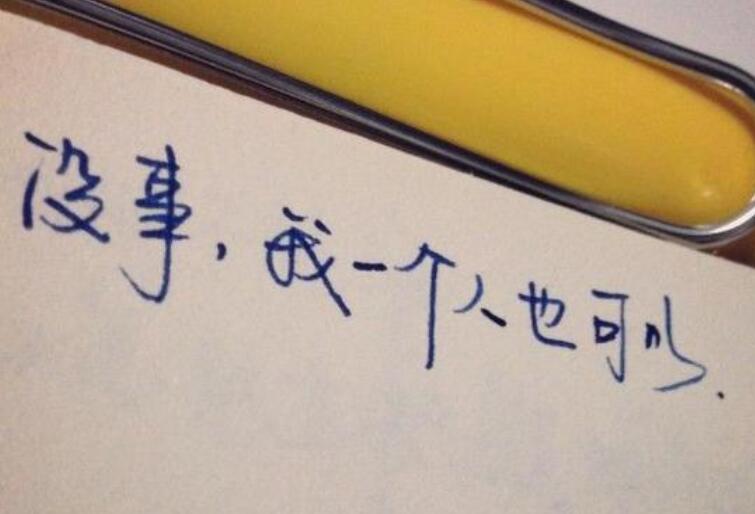 没事，我一个人也可以.